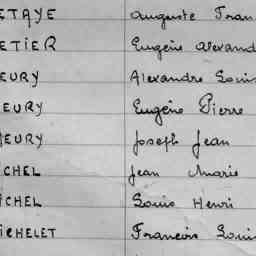 ETAYE Auguste Fran
ETIER Eugène Alexand
EURY Alexandre Louis
EURY Eugène Pierre
EURY Joseph Jean
CHEL Jean Marie
CHEL Louis Henri
ICHELET Francois Loui